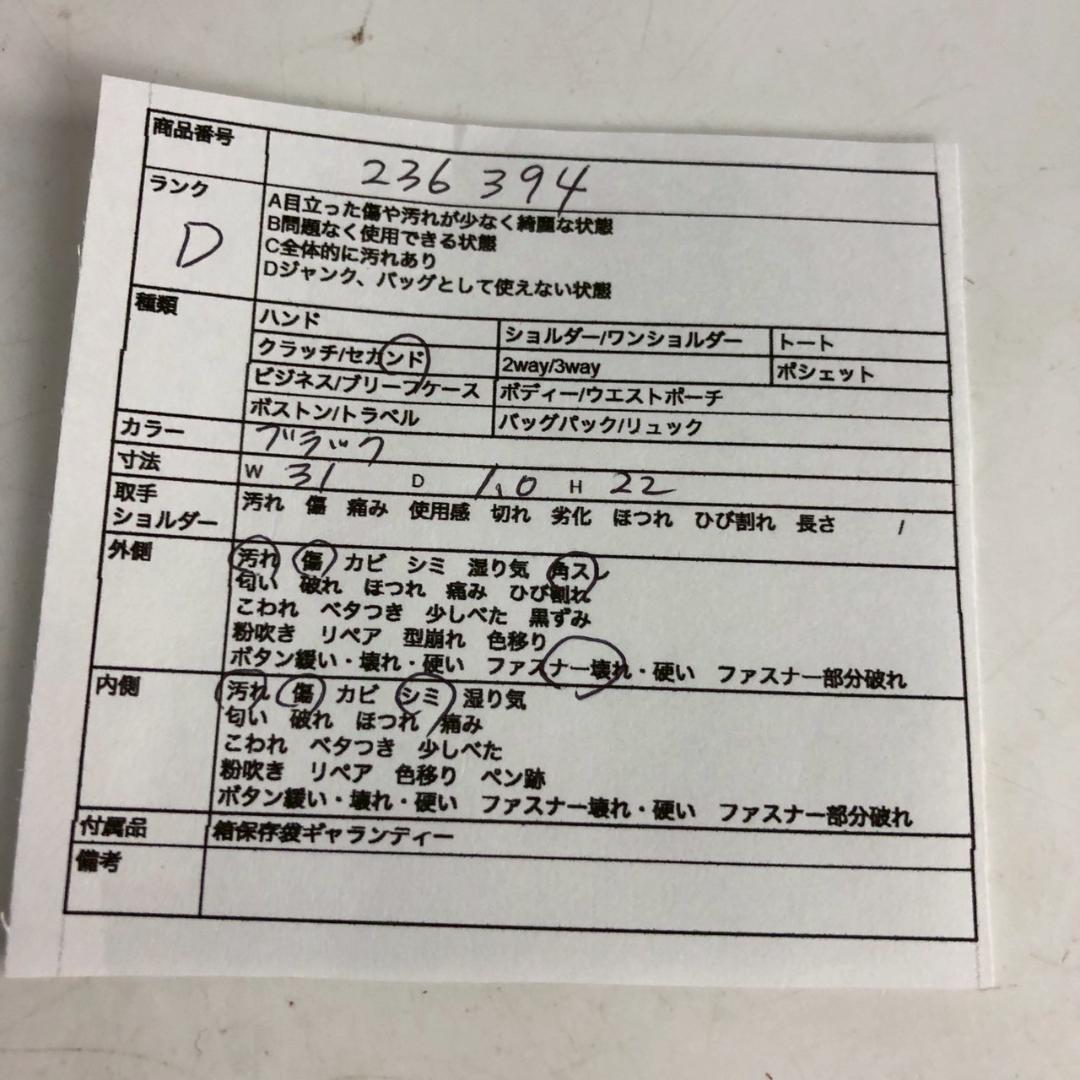 商品番号 236394
ランク D
A目立った傷や汚れが少なく綺麗な状態
B問題なく使用できる状態
C全体的に汚れあり
Dジャンク、バッグとして使えない状態
種類
ハンド ショルダー/ワンショルダー トート
クラッチ/セカンド 2way/3way ポシェット
ビジネス/ブリーフケース ボディー/ウエストポーチ
ボストン/トラベル バッグパック/リュック
カラー ブラック
寸法 W 31 D 1.0 H 22
取手
ショルダー
汚れ 傷 痛み 使用感 切れ 劣化 ほつれ ひび割れ 長さ /
外側
汚れ 傷 カビ シミ 湿り気 角スレ
匂い 破れ ほつれ 痛み ひび割れ
こわれ ベタつき 少しべた 黒ずみ
粉吹き リペア 型崩れ 色移り
ボタン緩い・壊れ・硬い ファスナー壊れ・硬い ファスナー部分破れ
内側
汚れ 傷 カビ シミ 湿り気
匂い 破れ ほつれ 痛み
こわれ ベタつき 少しべた
粉吹き リペア 色移り ペン跡
ボタン緩い・壊れ・硬い ファスナー壊れ・硬い ファスナー部分破れ
付属品 箱保存袋ギャランティー
備考